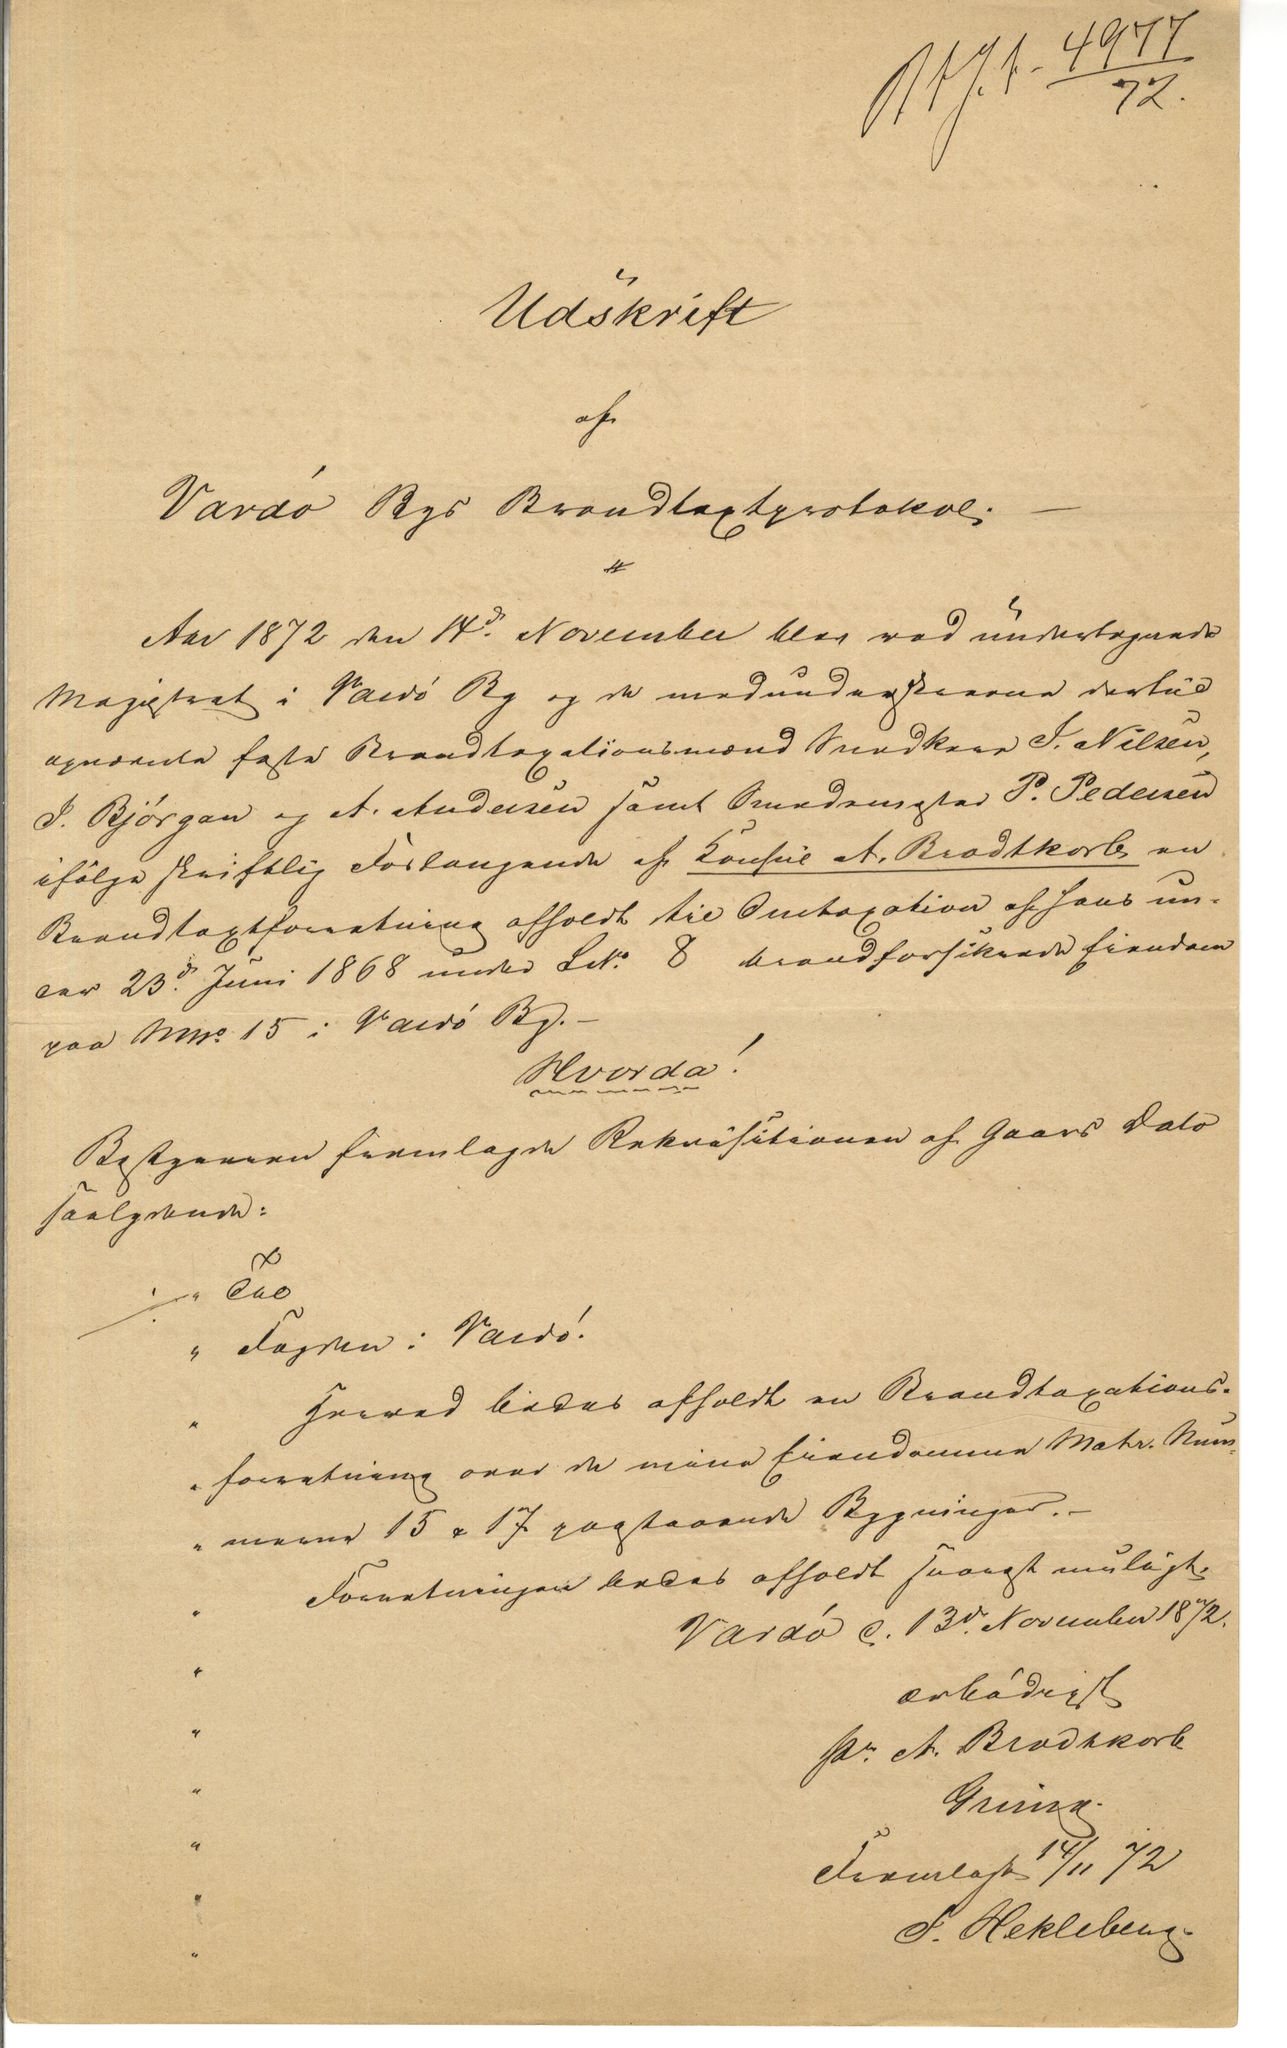 4977
72.
Udskrift
af
Vardø Byes Brandtaxtprotokol. —
Aar 1872 den 14d. November blev ved undertegnede
Magistrat i Vardø By og de medunderskrevne dertil
opnævnte faste Brandtaxationsmænd Snedkere J. Nilsen,
J. Bjørgan og A. Andersen samt Smedemester P. Pedersen
ifølge skriftlig Forlangende af Konsul A. Brodtkorb en
Brandtaxtforretning afholdt til Omtaxation af hans un-
der 23d. Juni 1868 under Lit. 8 brandforsikrede Eiendom
paa Mno. 15 i Vardø By. —
Hvorda!
Bestyreren fremlagde Rekvisitionen af Gaars Dato
saalydende:
" Til
" Fogden i Vardø.
" Herved bedes afholdt en Brandtaxations-
" forretning over de mine Eiendomme Matr. Num-
" merne 15 & 17 paastaaende Bygninger. —
" Forretningen bedes afholdt snarest muligt.
Vardø d. 13d. November 1872.
" ærbødigst
" pr. A. Brodtkorb
"
" Fremlagt 14/11 72
" F. Hekleberg.
"